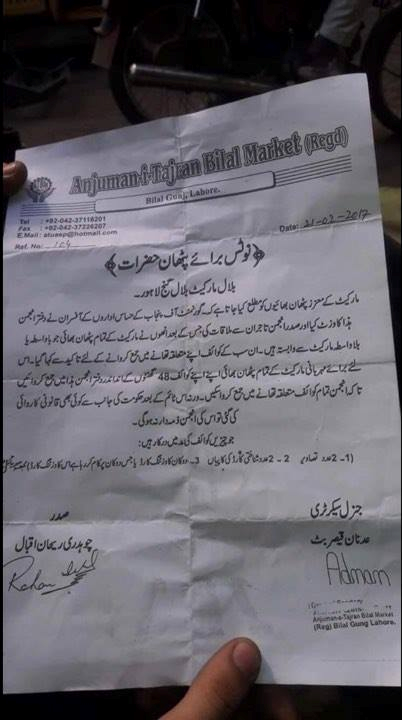 Anjuman-i-Tajran Bilal Market (Regd)
Bilal Gunj, Lahore.
Tel : +92-042-37118201
Fax : +92-042-37226207
E.Mail : atuasp@hotmail.com
Ref. No: 104
Date: 21-02-2017
نوٹس برائے پٹھان حضرات
بلال مارکیٹ بلال گنج لاہور۔
مارکیٹ کے معزز پٹھان بھائیوں کو مطلع کیا جاتا ہے کہ گورنمنٹ آف پنجاب کے حساس اداروں کے آفسران نے دفتر انجمن
ہذا کا وزٹ کیا اور صدر انجمن تاجران سے ملاقات کی جس کے بعد انھوں نے مارکیٹ کے تمام پٹھان بھائی جو بلواسطہ یا
بلا واسطہ مارکیٹ سے وابستہ ہیں۔ ان سب کے کوائف اپنے متعلقہ تھانے میں جمع کروانے کے لئے تاکید سے کہا گیا۔ اس
لئے برائے مہربانی مارکیٹ کے تمام پٹھان بھائی اپنے اپنے کوائف 48 گھنٹوں کے اندر اندر دفتر انجمن ہذا میں جمع کروائیں
تاکہ انجمن تمام کوائف متعلقہ تھانے میں جمع کرواسکیں۔ ورنہ اس ٹائم کے بعد حکومت کی جانب سے کوئی بھی قانونی کاروائی
کی گئی تو اس کی انجمن ذمہ دار نہ ہوگی۔
جو چیزیں کوائف کی مد میں درکار ہیں:
(1- 2عدد تصاویر 2- 2عدد شناختی کارڈ کی کاپیاں 3- دوکان کا وزٹنگ کارڈ یا جس دوکان پر کام کر رہا ہے اس کا وزٹنگ کارڈ)
جنرل سیکرٹری
عدنان قیصر بٹ
Adnan
Anjuman-e-Tajran Bilal Market
(Reg) Bilal Gung Lahore.
صدر
چوہدری ریحان اقبال